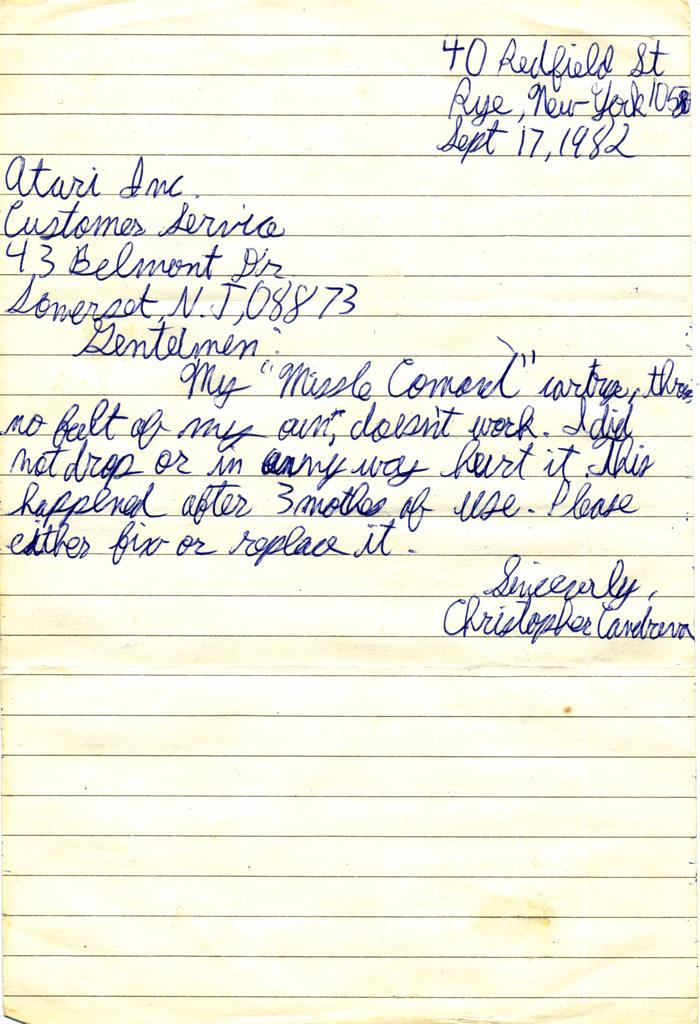 40 Redfield St
Rye, New-York 1058
Sept 17, 1982
Atari Inc.
Customer Service
43 Belmont Dr
Somerset, N.J, 08873
Gentelmen:
My "Missle Comand" , thru
no falt of my own, doesn't work. I did
not drop or in anmy way heurt it. This
happened after 3 mothes of use. Please
eithes fix or replace it.
Sincecurly,
Christopher Candreva